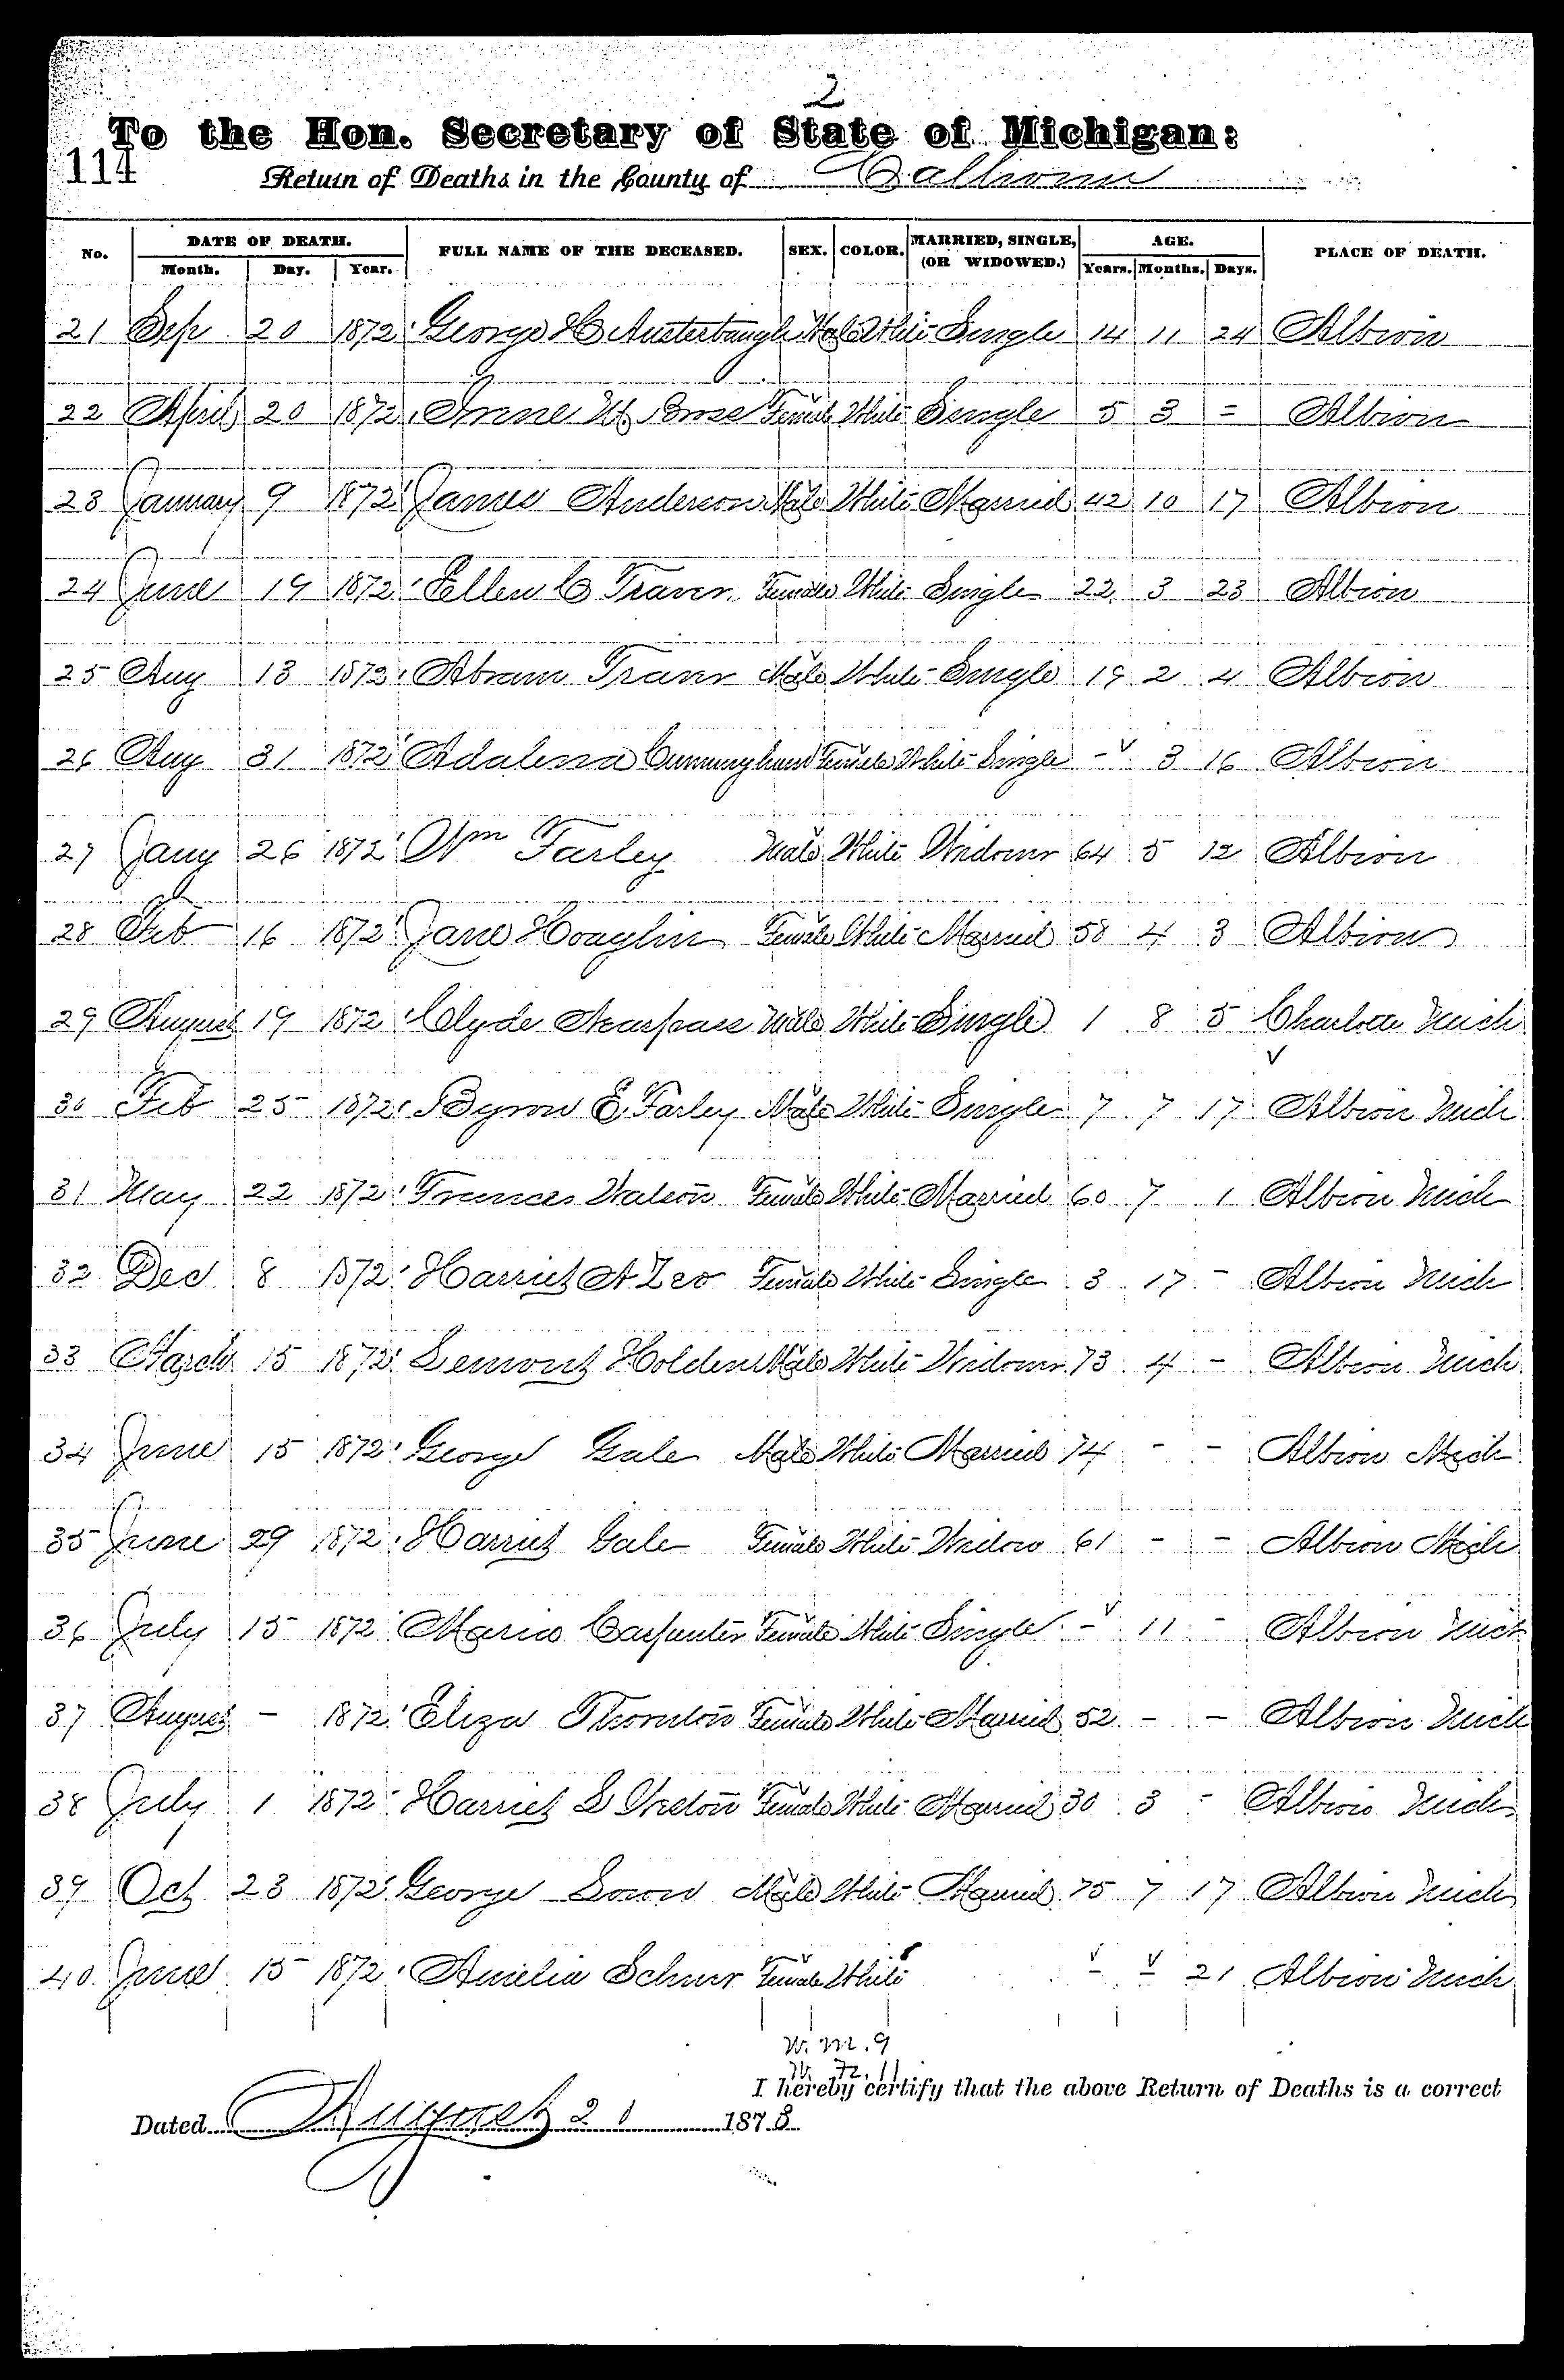 2
To the Hon. Secretary of State of Michigan:
114
Return of Deaths in the County of Calhoun
No. DATE OF DEATH. FULL NAME OF THE DECEASED. SEX. COLOR. MARRIED, SINGLE, (OR WIDOWED.) AGE. PLACE OF DEATH.
Month. Day. Year. Years. Months. Days.
21 Sep 20 1872 George H Austerbaugh Male White Single 14 11 24 Albion
22 April 20 1872 White Female Single 5 3 = Albion
23 January 9 1872 James Anderson Male White Married 42 10 17 Albion
24 June 19 1872 Ellen C Traver Female White Single 22 3 23 Albion
25 Aug 13 1872 Abram Traver Male White Single 19 2 4 Albion
26 Aug 31 1872 Adalena Cunningham Female White Single - 3 16 Albion
27 Jany 26 1872 Wm Farley Male White Widowr 64 5 12 Albion
28 Feb 16 1872 Jane Hoaglin Female White Married 58 4 3 Albion
29 August 19 1872 Clyde Male White Single 1 8 5 Charlotte Mich
30 Feb 25 1872 Byron E. Farley Male White Single 7 7 17 Albion Mich
31 May 22 1872 Frances Watson Female White Married 60 7 1 Albion Mich
32 Dec 8 1872 Harriet A Leo Female White Single 3 17 - Albion Mich
33 March 15 1872 Lemont Holden Male White Widowr 73 4 - Albion Mich
34 June 15 1872 George Gale Male White Married 74 - - Albion Mich
35 June 29 1872 Harriet Gale Female White Widow 61 - - Albion Mich
36 July 15 1872 Maria Carpenter Female White Single - 11 - Albion Mich
37 August - 1872 Eliza Thornton Female White Married 52 - - Albion Mich
38 July 1 1872 Harriet L Weston Female White Married 30 3 - Albion Mich
39 Oct 23 1872 George Male White Married 75 7 17 Albion Mich
40 June 15 1872 Amelia Schurr Female White - - 21 Albion Mich
W. M. 9
W. F. 11
I hereby certify that the above Return of Deaths is a correct
Dated August 21 1873